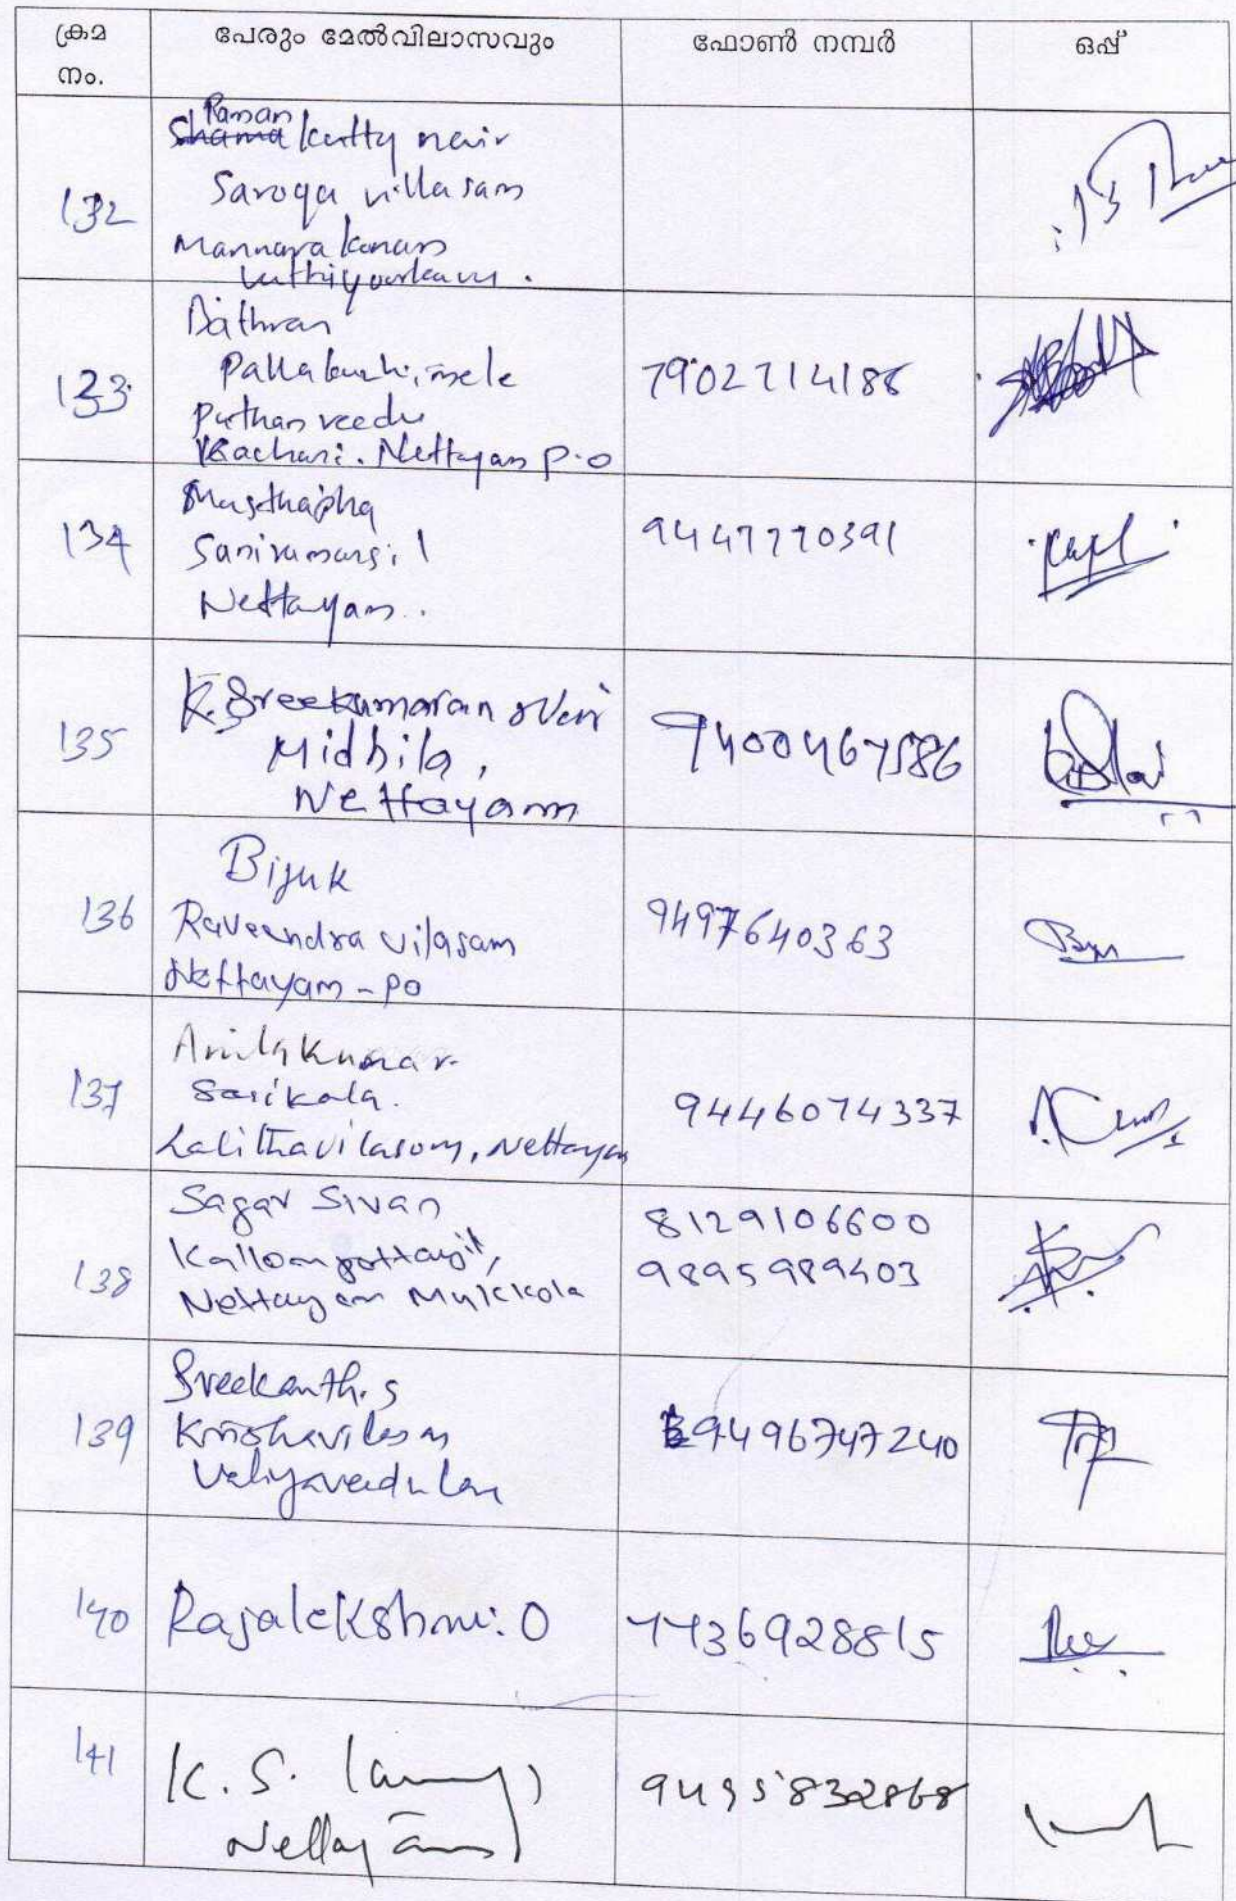 ക്രമ നം. പേരും മേൽവിലാസവും ഫോൺ നമ്പർ ഒപ്പ്
132
Raman
Shama kutty nair
Saroga villasam
Mannarakonam
Vathiyoorkavu.
133
Puthan veedu
Kachani. Nettayam P.O
7902714186
134
Musthapha
Nettayam.
9447770391
135
K. Sreekumaran Nair
Midhila,
Nettayam
9400467586
136
Biju K
Raveendra vilasam
Nettayam - PO
9497640363
137
Anilakumar
Sasikala.
Lalithavilasom, Nettayam
9446074337
138
Sagar Sivan
Nettayam Mukkola
8129106600
9895989403
139
Sreekanth. S
Krishnavilasam
9496747240
140
Rajalekshmi. O
141
K. S.
Nettayam